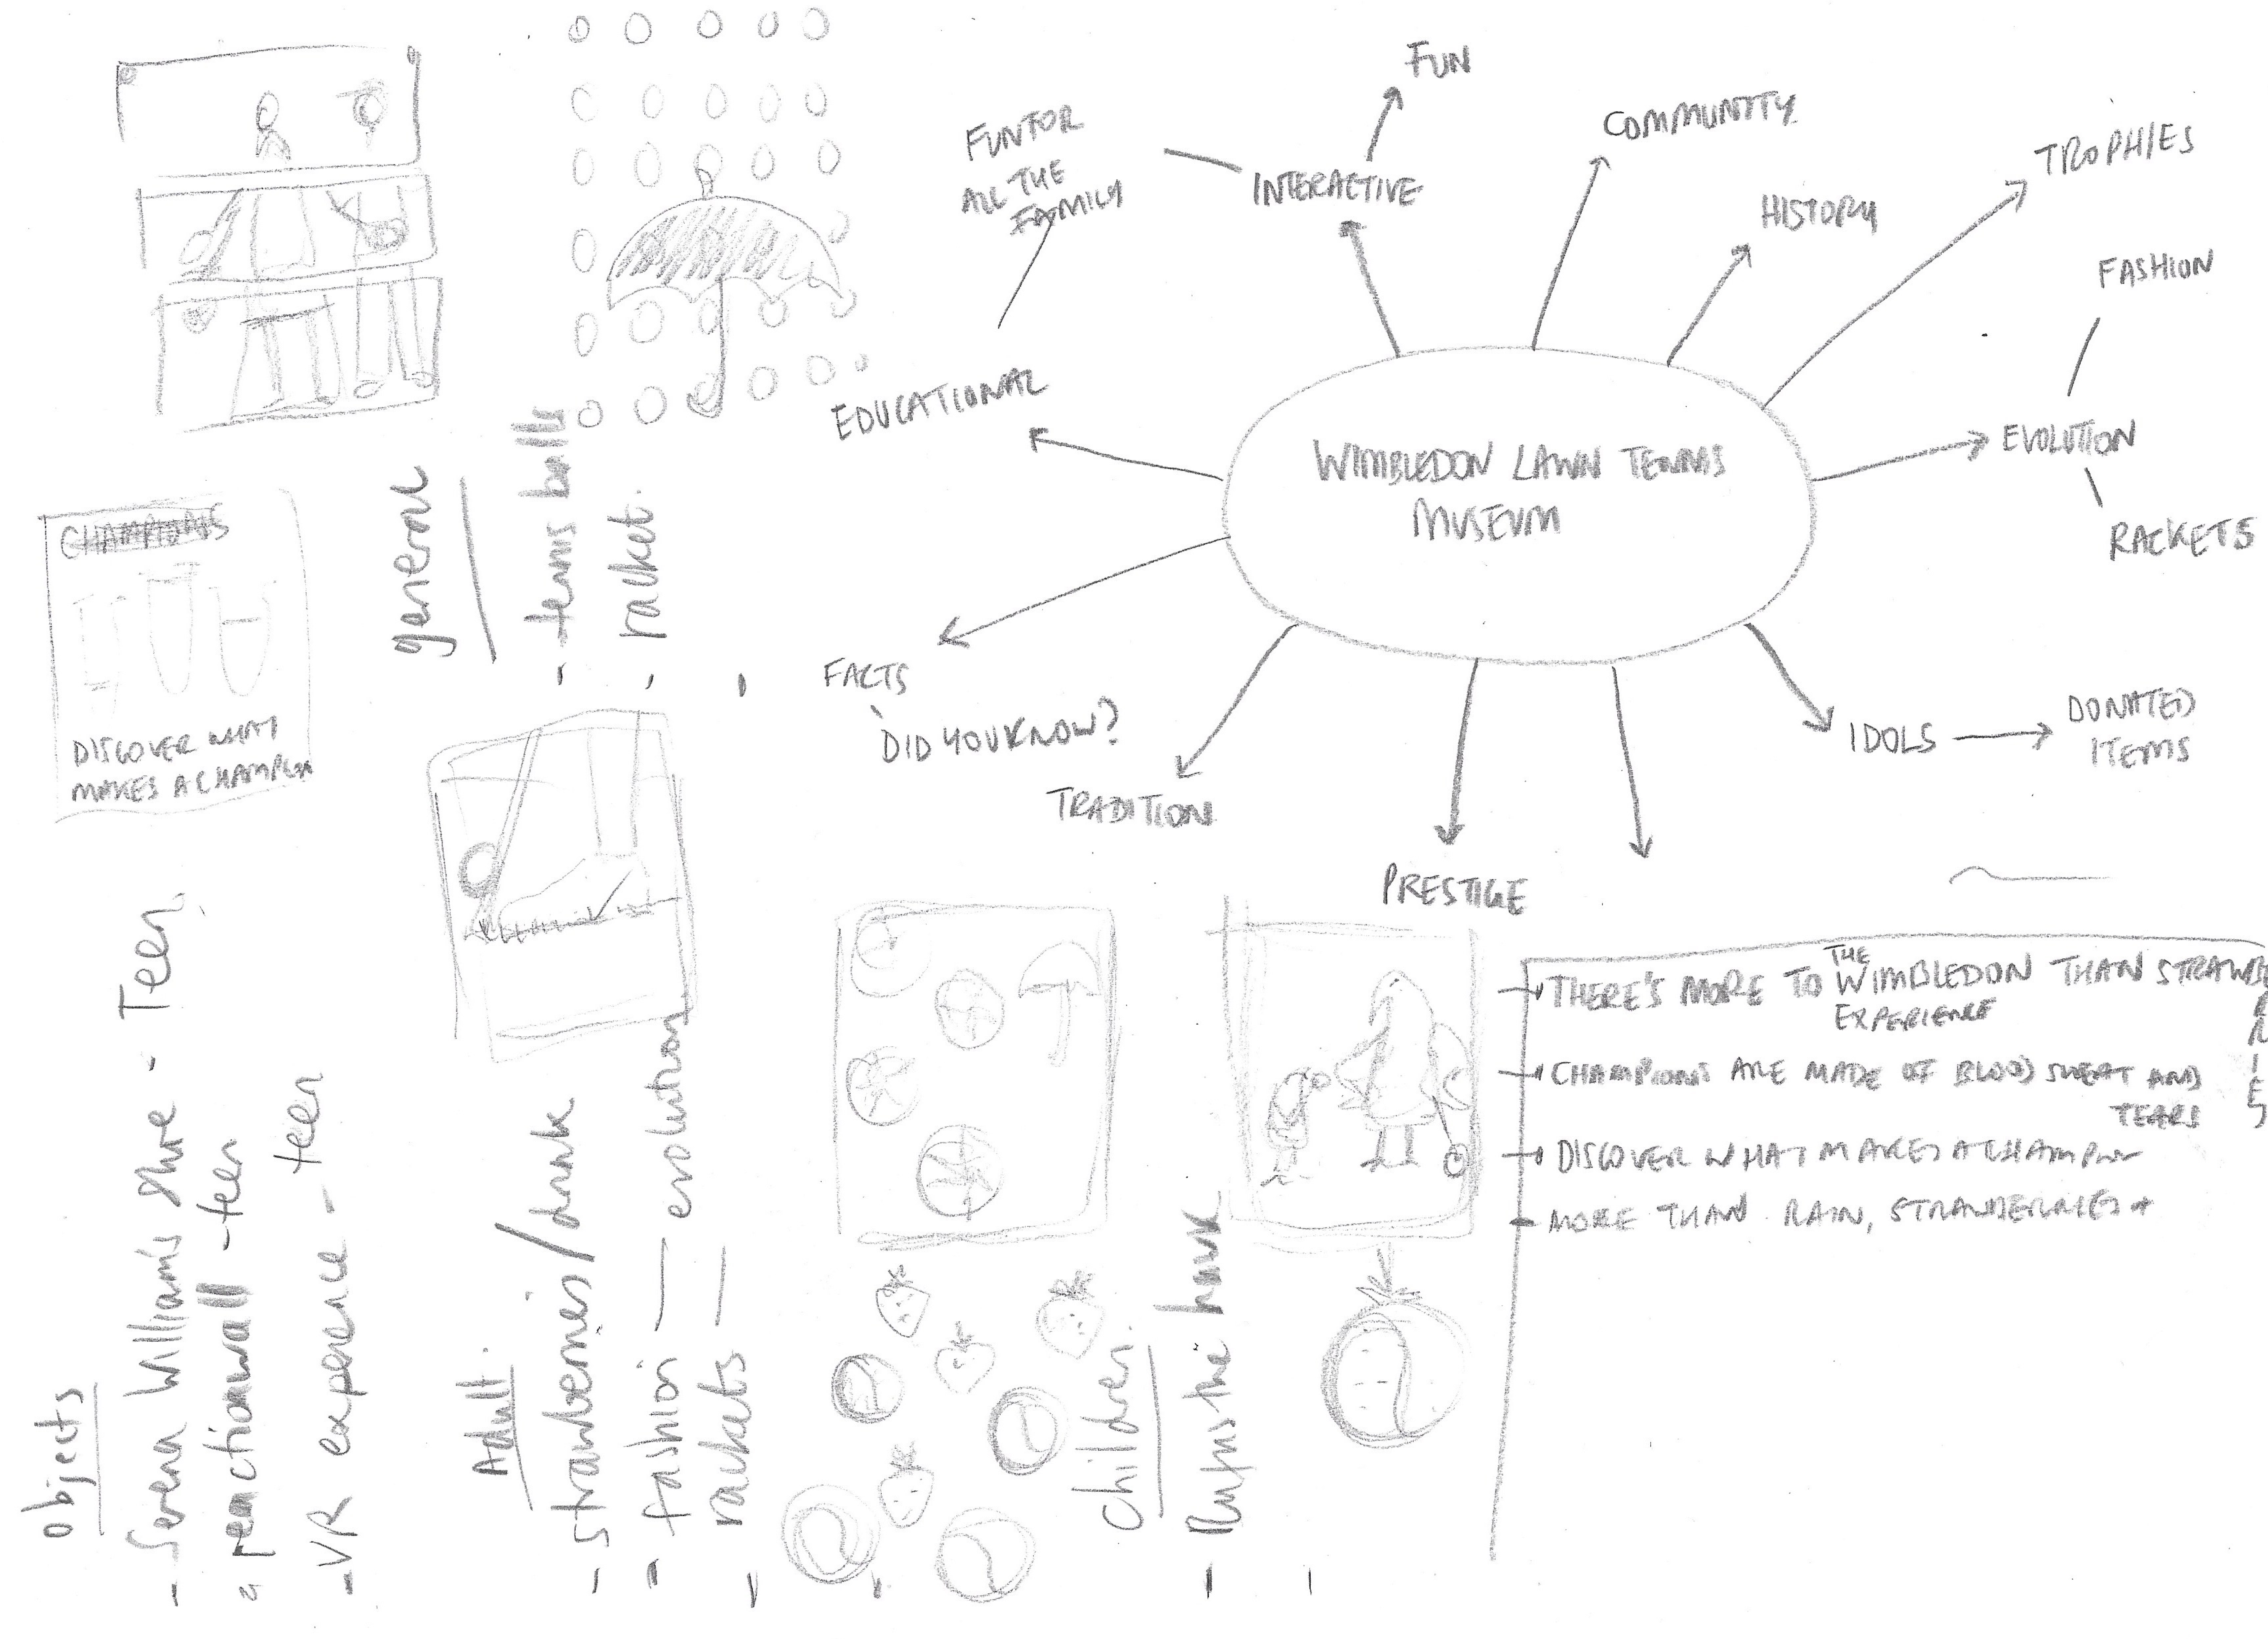 FUN
FUN FOR
ALL THE
FAMILY
INTERACTIVE
COMMUNITY
HISTORY
TROPHIES
FASHION
EVOLUTION
RACKETS
EDUCATIONAL
WIMBLEDON LAWN TENNIS
MUSEUM
FACTS
DID YOU KNOW?
TRADITION
PRESTIGE
IDOLS
DONATED
ITEMS
THERE'S MORE TO THE WIMBLEDON THAN STRAWBERRIES
EXPERIENCE
CHAMPIONS ARE MADE OF BLOOD SWEAT AND
TEARS
DISCOVER WHAT MAKES A CHAMPION
MORE THAN RAIN, STRAWBERRIES +
CHAMPIONS
DISCOVER WHAT
MAKES A CHAMPION
general
- tennis balls
- racket.
-
objects
- Seren William's shoe - Teen
- reactionwall - teen
- VR experience - teen
Adult.
- strawberries/drink
- fashion — evolution
- rackets —
children.
- Rufus the hawk